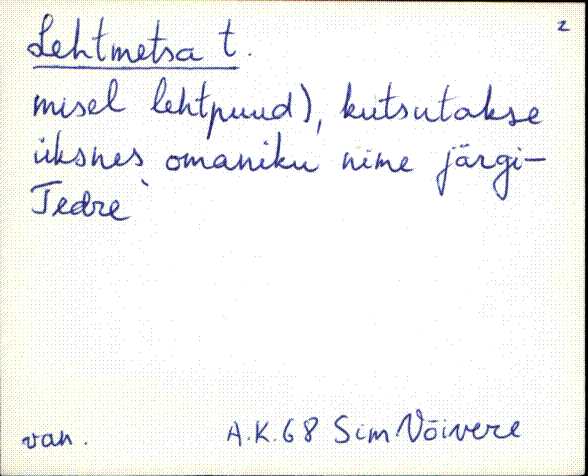 2
Lehtmetsa t.
misel lehtpuud), kutsutakse
üksnes omaniku nime järgi-
Tedre`
van.
A.K.68 Sim Võivere